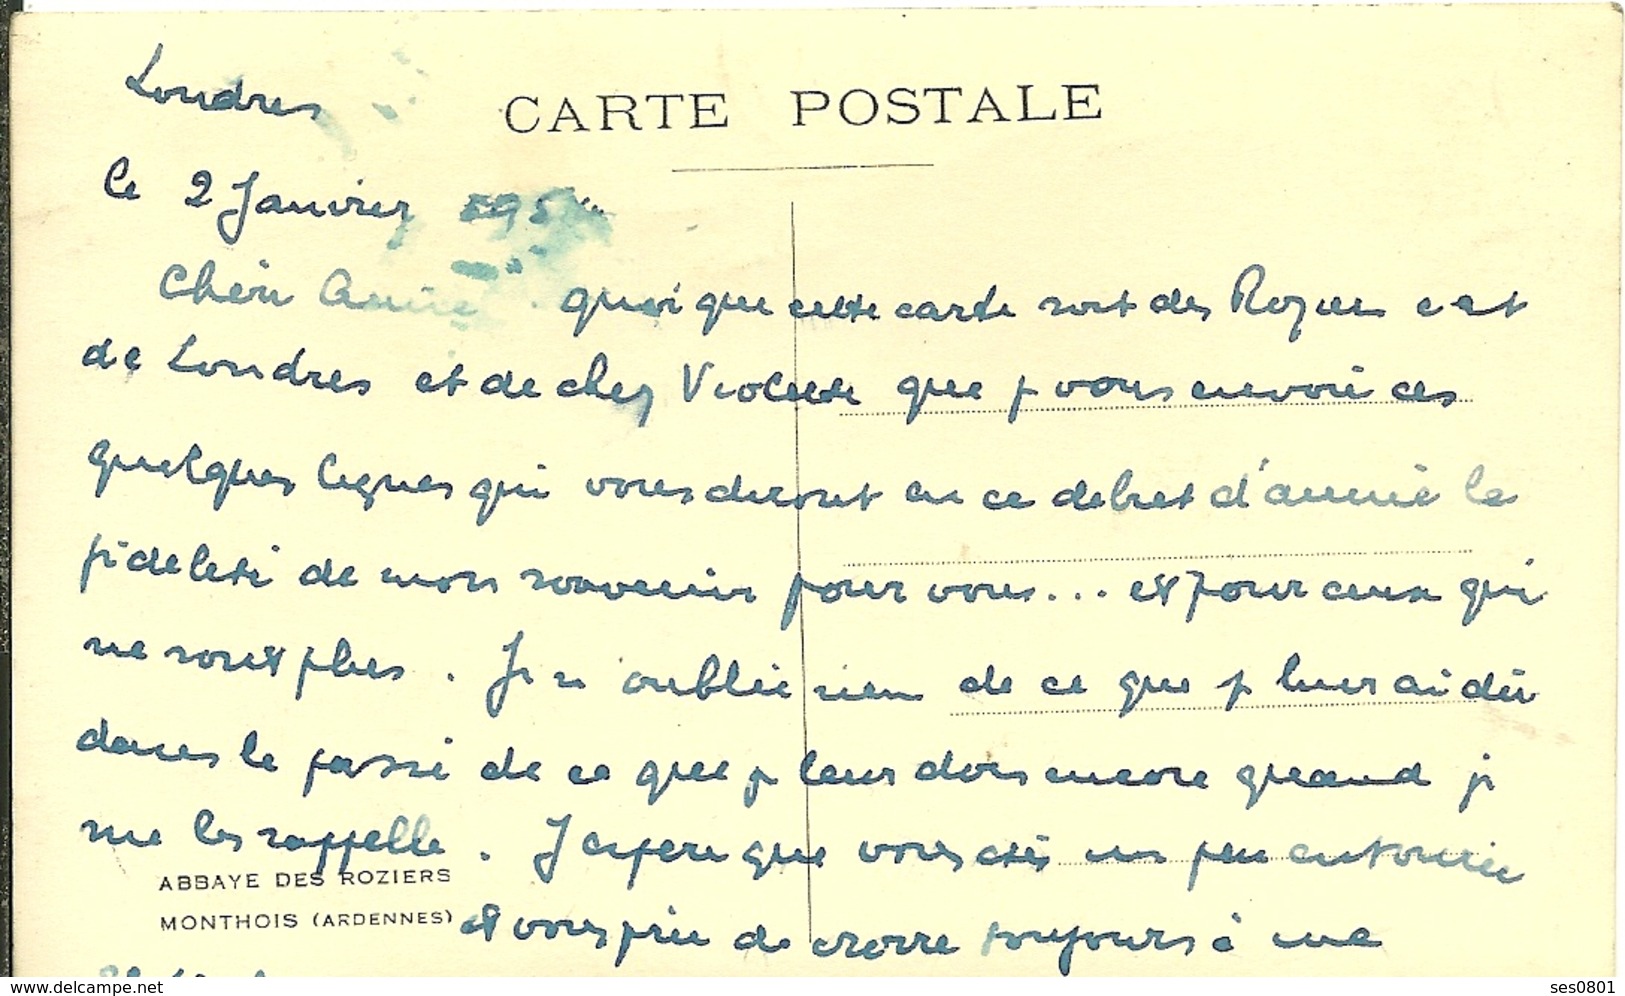 CARTE POSTALE
Londres
le 2 Janvier 195
Chère Amie quoique cette carte soit des Roziers c'est
de Londres et de chez Violette que je vous envoie ces
quelques lignes qui vous diront en ce debut d'année la
fidelité de mon souvenir pour vous... et pour ceux qui
ne sont plus. Je n'oublie rien de ce que je leur ai dû
dans le passé de ce que je leur dois encore quand je
me les rappelle. J'espere que vous etes un peu entourée
ABBAYE DES ROZIERS
MONTHOIS (ARDENNES)
et vous prie de croire toujours à ma
www.delcampe.net
ses0801